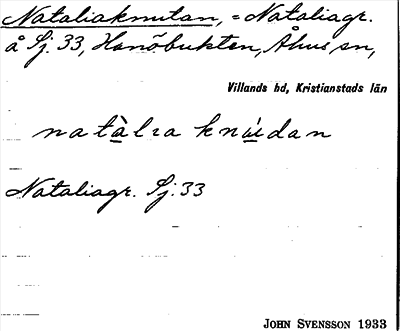 Nataliaknutan, = Nataliagr.
å Sj. 33, Hanöbukten, Åhus sn,
Villands hd, Kristianstads län
natàlıa knúdan
Nataliagr. Sj. 33
JOHN SVENSSON 1933